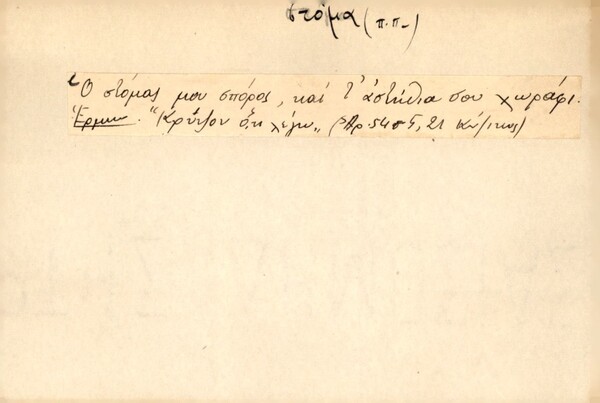 στόμα (π.π.)
Ὁ στόμας μου σπόρος, καὶ τ' ἀστήθια σου χωράφι.
Ἑρμην. "Κρύψον ὅ,τι λέγω„ (Ἀρ. 54 σ 5, 21